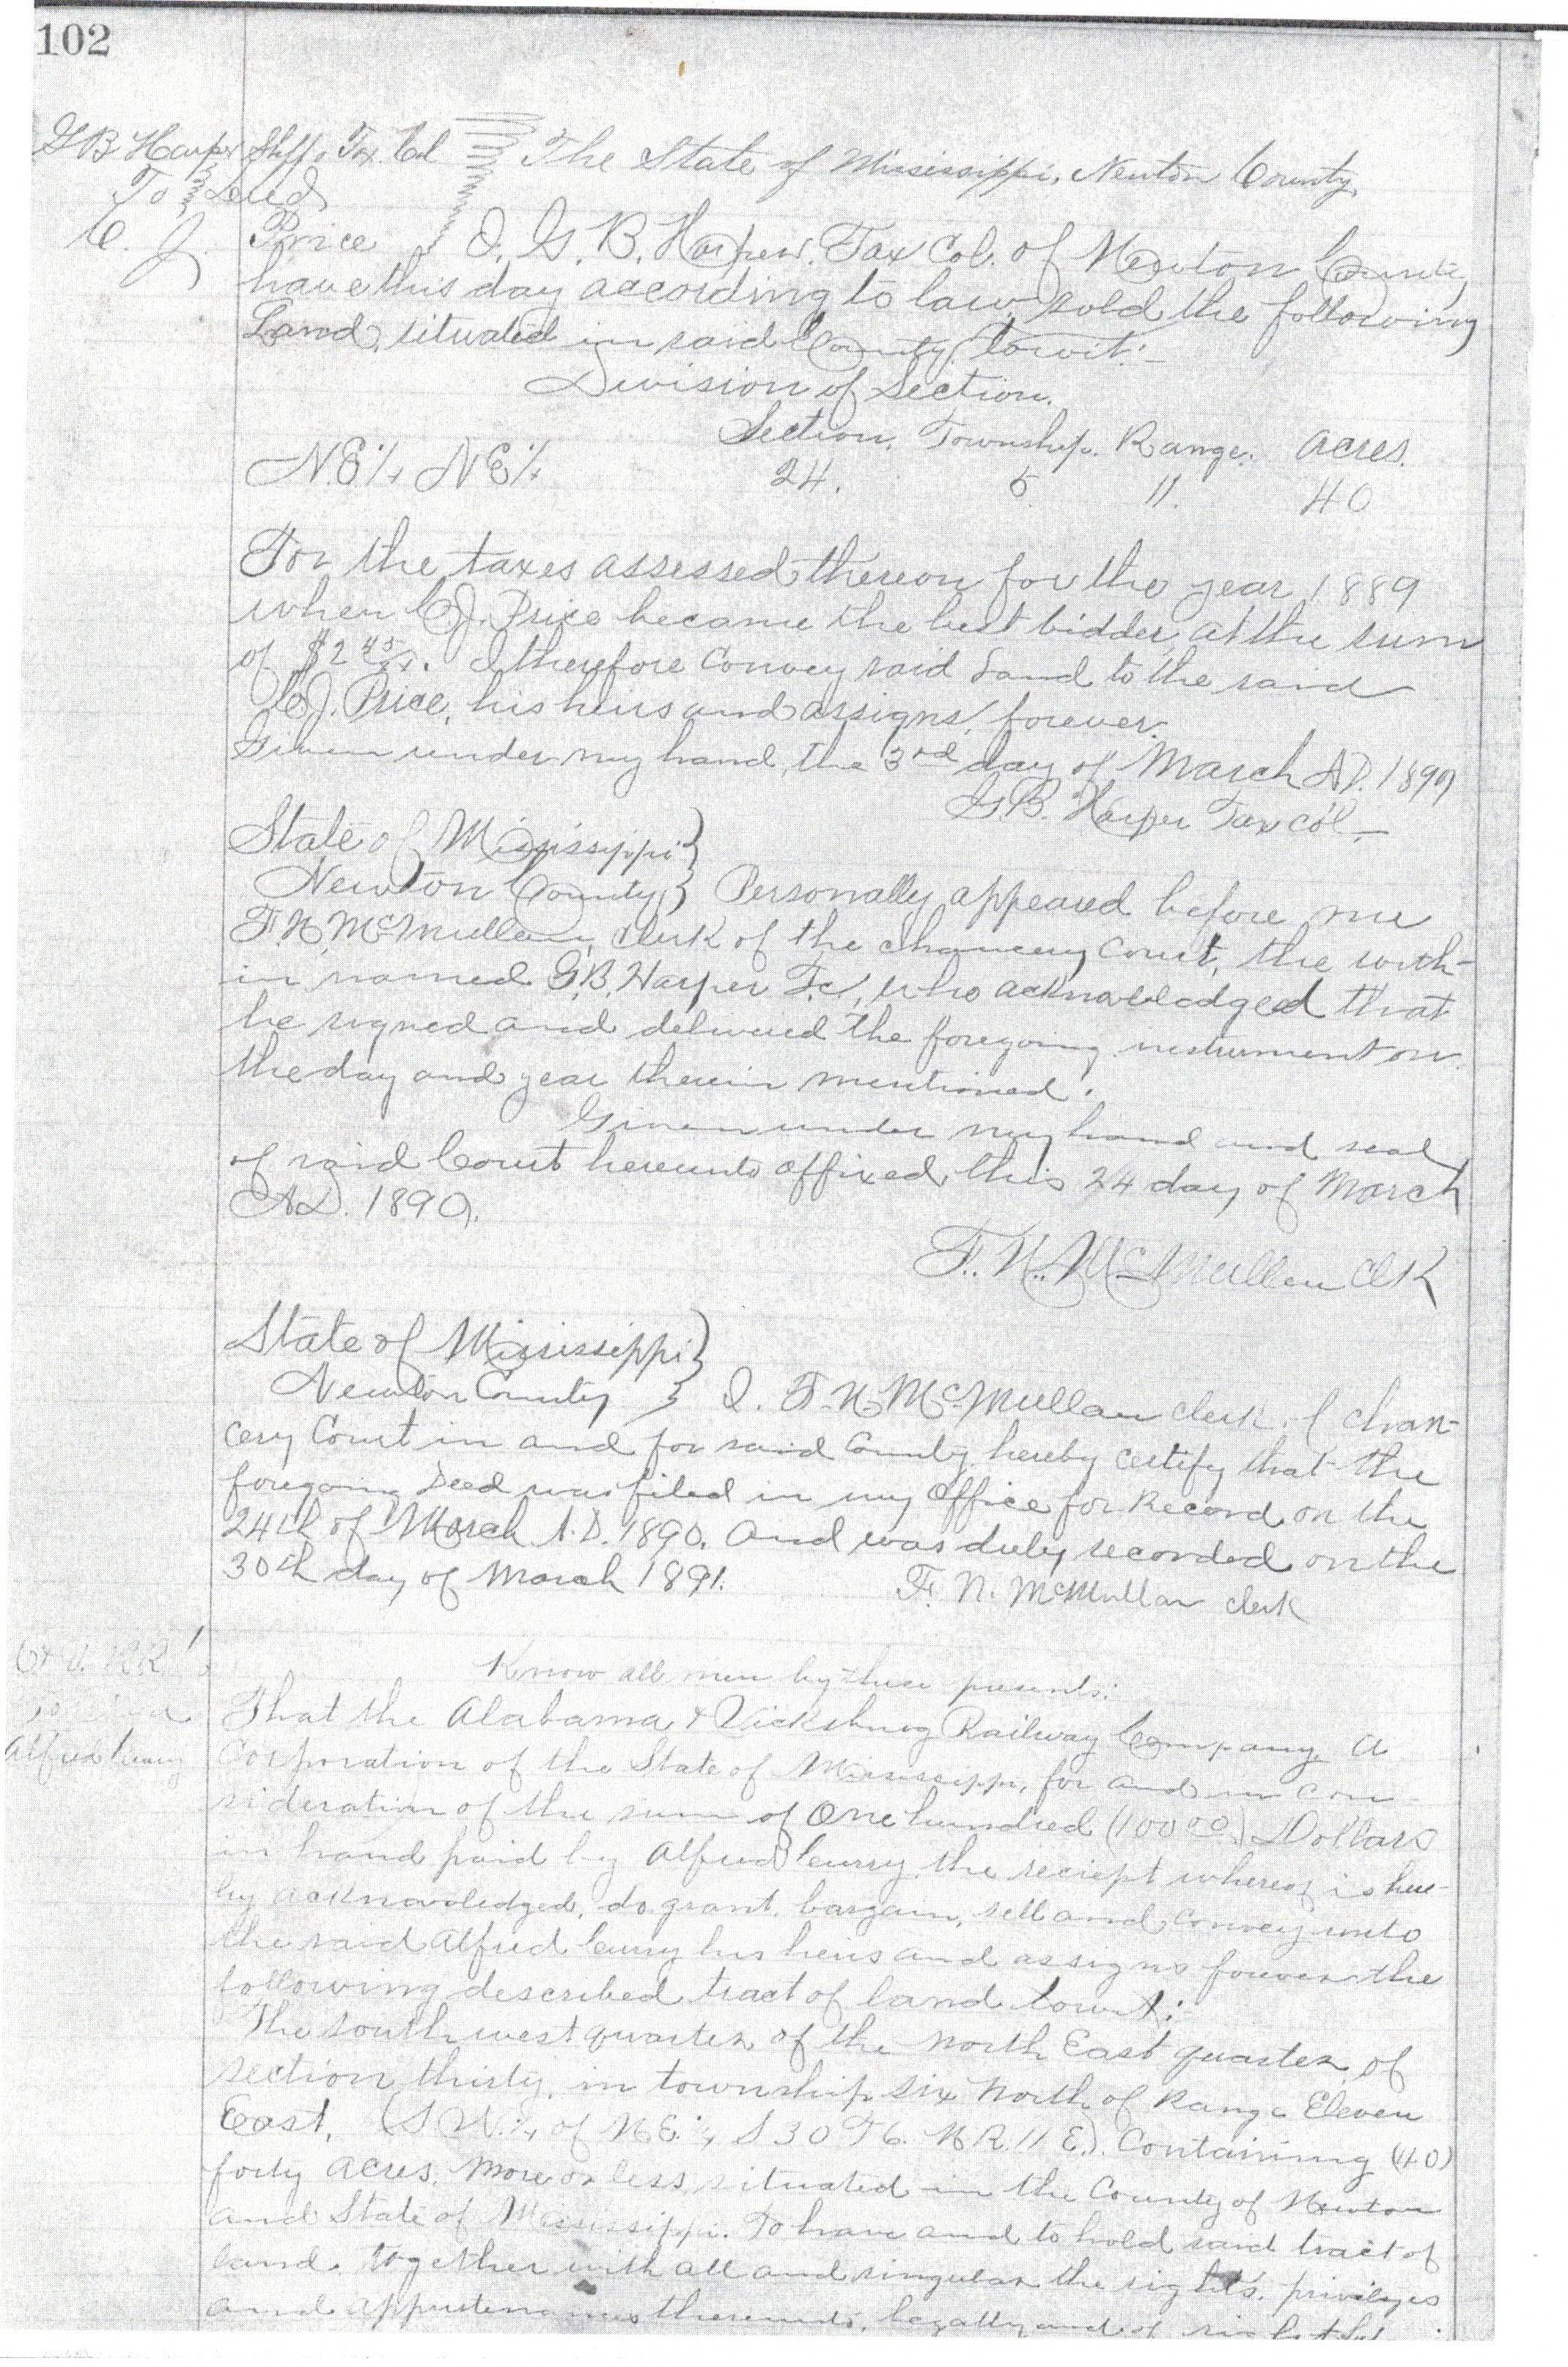 102
G B Harper Shff & Tax. Col } The State of Mississippi, Newton County
To } Deed
C. J. Price } I, G. B. Harper, Tax Col. of Newton County
have this day according to law, sold the following
Land, situated in said County, towit:-
Division of Section.
Section. Township. Range. Acres.
N.E¼ NE¼ 24. 5 11. 40
For the taxes assessed thereon for the year 1889
when C.J. Price became the best bidder, at the sum
of $2 45/xx. I therefore convey said Land to the said
C.J. Price, his heirs and assigns, forever.
Given under my hand, the 3rd day of March A.D. 1890
G.B. Harper Tax Col-
State of Mississippi }
Newton County } Personally appeared before me
F.N. McMullan, Clerk of the Chancery Court, the with-
in named G.B. Harper T.C., who acknowledged that
he signed and delivered the foregoing instrument on
the day and year therein mentioned.
Given under my hand and seal
of said Court hereunto affixed, this 24 day of March
A.D. 1890.
F. N. McMullan Clk
State of Mississippi }
Newton County } I. F. N. McMullan clerk of Chan-
cery Court in and for said County hereby certify that the
foregoing Deed was filed in my office for Record on the
24th of March A.D. 1890. and was duly recorded on the
30th day of March 1891. F. N. McMullan clerk
Know all men by these presents:
That the Alabama & Vicksburg Railway Company, A
Corporation of the State of Mississippi, for and in con-
sideration of the sum of One hundred (100 00) Dollars
in hand paid by Alfred Curry the reciept whereof is here-
by acknowledged, do grant, bargain, sell and convey unto
the said Alfred Curry his heirs and assigns forever the
following described tract of land towit:
Alfred Curry
The south west quarter of the north East quarter of
section thirty, in township six North of Range Eleven
East, (S W.¼ of N E.¼ S 30 T 6. N R. 11 E.). Containing (40)
forty acres. More or less, situated in the County of Newton
and State of Mississippi. To have and to hold said tract of
land. together with all and singular the rights. privileges
and appurtenances thereunto, legally and of